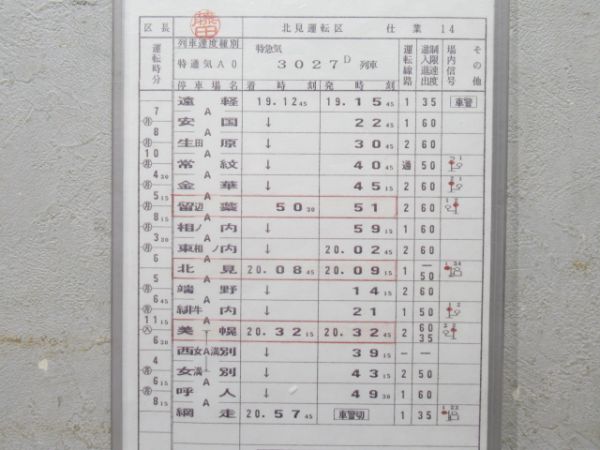 区長 藤田 北見運転区 仕業 14
運転時分 列車速度種別 特急気 3027D 列車 運転線路 制限速度 進入進出 場内信号 その他
特通気A0
停車場名 着時刻 発時刻
遠軽 19.12 45 19.15 45 1 35 車警
7 A
安国 ↓ 22 45 1 60
8 A
生田原 ↓ 30 45 2 60
10 A
常紋 ↓ 40 45 通 50
4 30 A
金華 ↓ 45 15 2 60
5 15 A
留辺蘂 50 30 51 2 60
8 15 A
相ノ内 ↓ 59 15 1 60
3 30 A
東相ノ内 ↓ 20.02 45 2 60
6 A
北見 20.08 45 20.09 15 1 ー 50
5 A
端野 ↓ 14 15 2 60
6 45 A
緋牛内 ↓ 21 1 50
11 15 A
美幌 20.32 15 20.32 45 2 60 35
6 30
西女満別 A ↓ 39 15 ー ー
女満別 ↓ 43 15 2 50
6 15 A
呼人 ↓ 49 30 1 60
8 15 A
網走 20.57 45 車警切 1 35